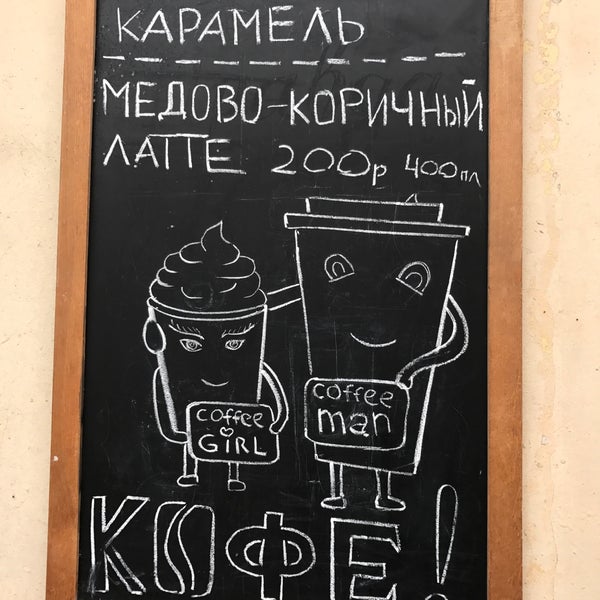 КАРАМЕЛЬ
МЕДОВО-КОРИЧНЫЙ
ЛАТТЕ 200р 400мл
coffee
GiRL
coffee
man
КОФЕ!